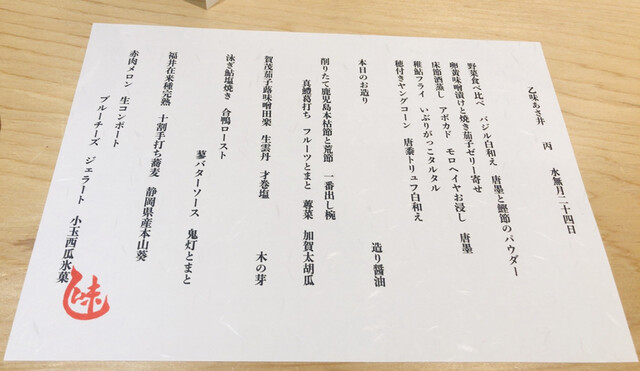 乙味あさ井　丙　水無月二十四日
野菜食べ比べ　バジル白和え　唐墨と鰹節のパウダー
卵黄味噌漬けと焼き茄子ゼリー寄せ
床節酒蒸し　アボカド　モロヘイヤお浸し　唐墨
稚鮎フライ　いぶりがっこタルタル
穂付きヤングコーン　唐黍トリュフ白和え
本日のお造り　造り醤油
削りたて鹿児島本枯節と荒節　一番出し椀
真鱧葛打ち　フルーツとまと　蓴菜　加賀太胡瓜
賀茂茄子蕗味噌田楽　生雲丹　才巻塩　木の芽
泳ぎ鮎塩焼き　合鴨ロースト
蓼バターソース　鬼灯とまと
福井在来種完熟　十割手打ち蕎麦　静岡県産本山葵
赤肉メロン　生コンポート
ブルーチーズ　ジェラート　小玉西瓜氷菓
味